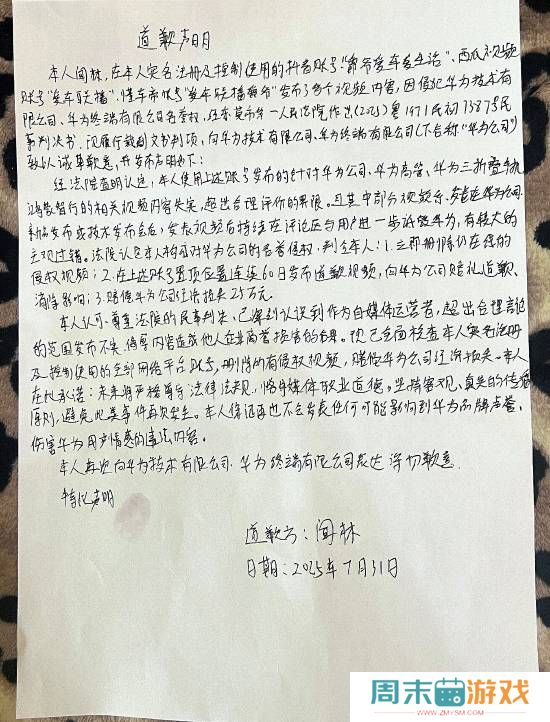 道歉声明
本人闻林，在本人实名注册及控制使用的抖音账号“爱车生活”、西瓜视频
账号“爱车联播”、懂车帝账号“爱车联播”发布了多个视频内容，因侵犯华为技术有
限公司、华为终端有限公司名誉权，经东莞市第一人民法院作出(2024)粤1971民初73875号民
事判决书。现履行裁判文书判项，向华为技术有限公司、华为终端有限公司(下合称“华为公司”)
致以诚挚歉意，并发布声明如下：
经法院查明认定，本人使用上述账号发布的针对华为公司、华为高管、华为三折叠手机
等的相关视频内容失实，超出合理评价的界限。且其中部分视频系华为公司
新品发布或技术发布会后，发表视频后持续在评论区与用户进一步诋毁华为，有较大的
主观过错。法院认定本人构成对华为公司的名誉侵权，判令本人：1.立即删除仍在线的
侵权视频；2.在上述账号置顶位置连续60日发布道歉视频，向华为公司赔礼道歉、
消除影响；3.赔偿华为公司经济损失25万元。
本人认可、尊重法院的民事判决，已深刻认识到作为自媒体运营者，超出合理言论
的范围发布不实、侮辱内容造成他人企业商誉损害的后果。现已全面核查本人实名注册
及控制使用的全部网络平台账号，删除所有侵权视频，赔偿华为公司经济损失。本人
在此承诺：未来将严格遵守法律法规，恪守媒体职业道德。坚持客观、真实的传播
原则，避免此类事件再次发生。本人保证再也不会发表任何可能影响到华为品牌声誉、
伤害华为用户情感的违法内容。
本人再次向华为技术有限公司、华为终端有限公司表达深切歉意。
特此声明
道歉人：闻林
日期：2025年7月31日
周末游戏
WWW.ZMYSM.COM